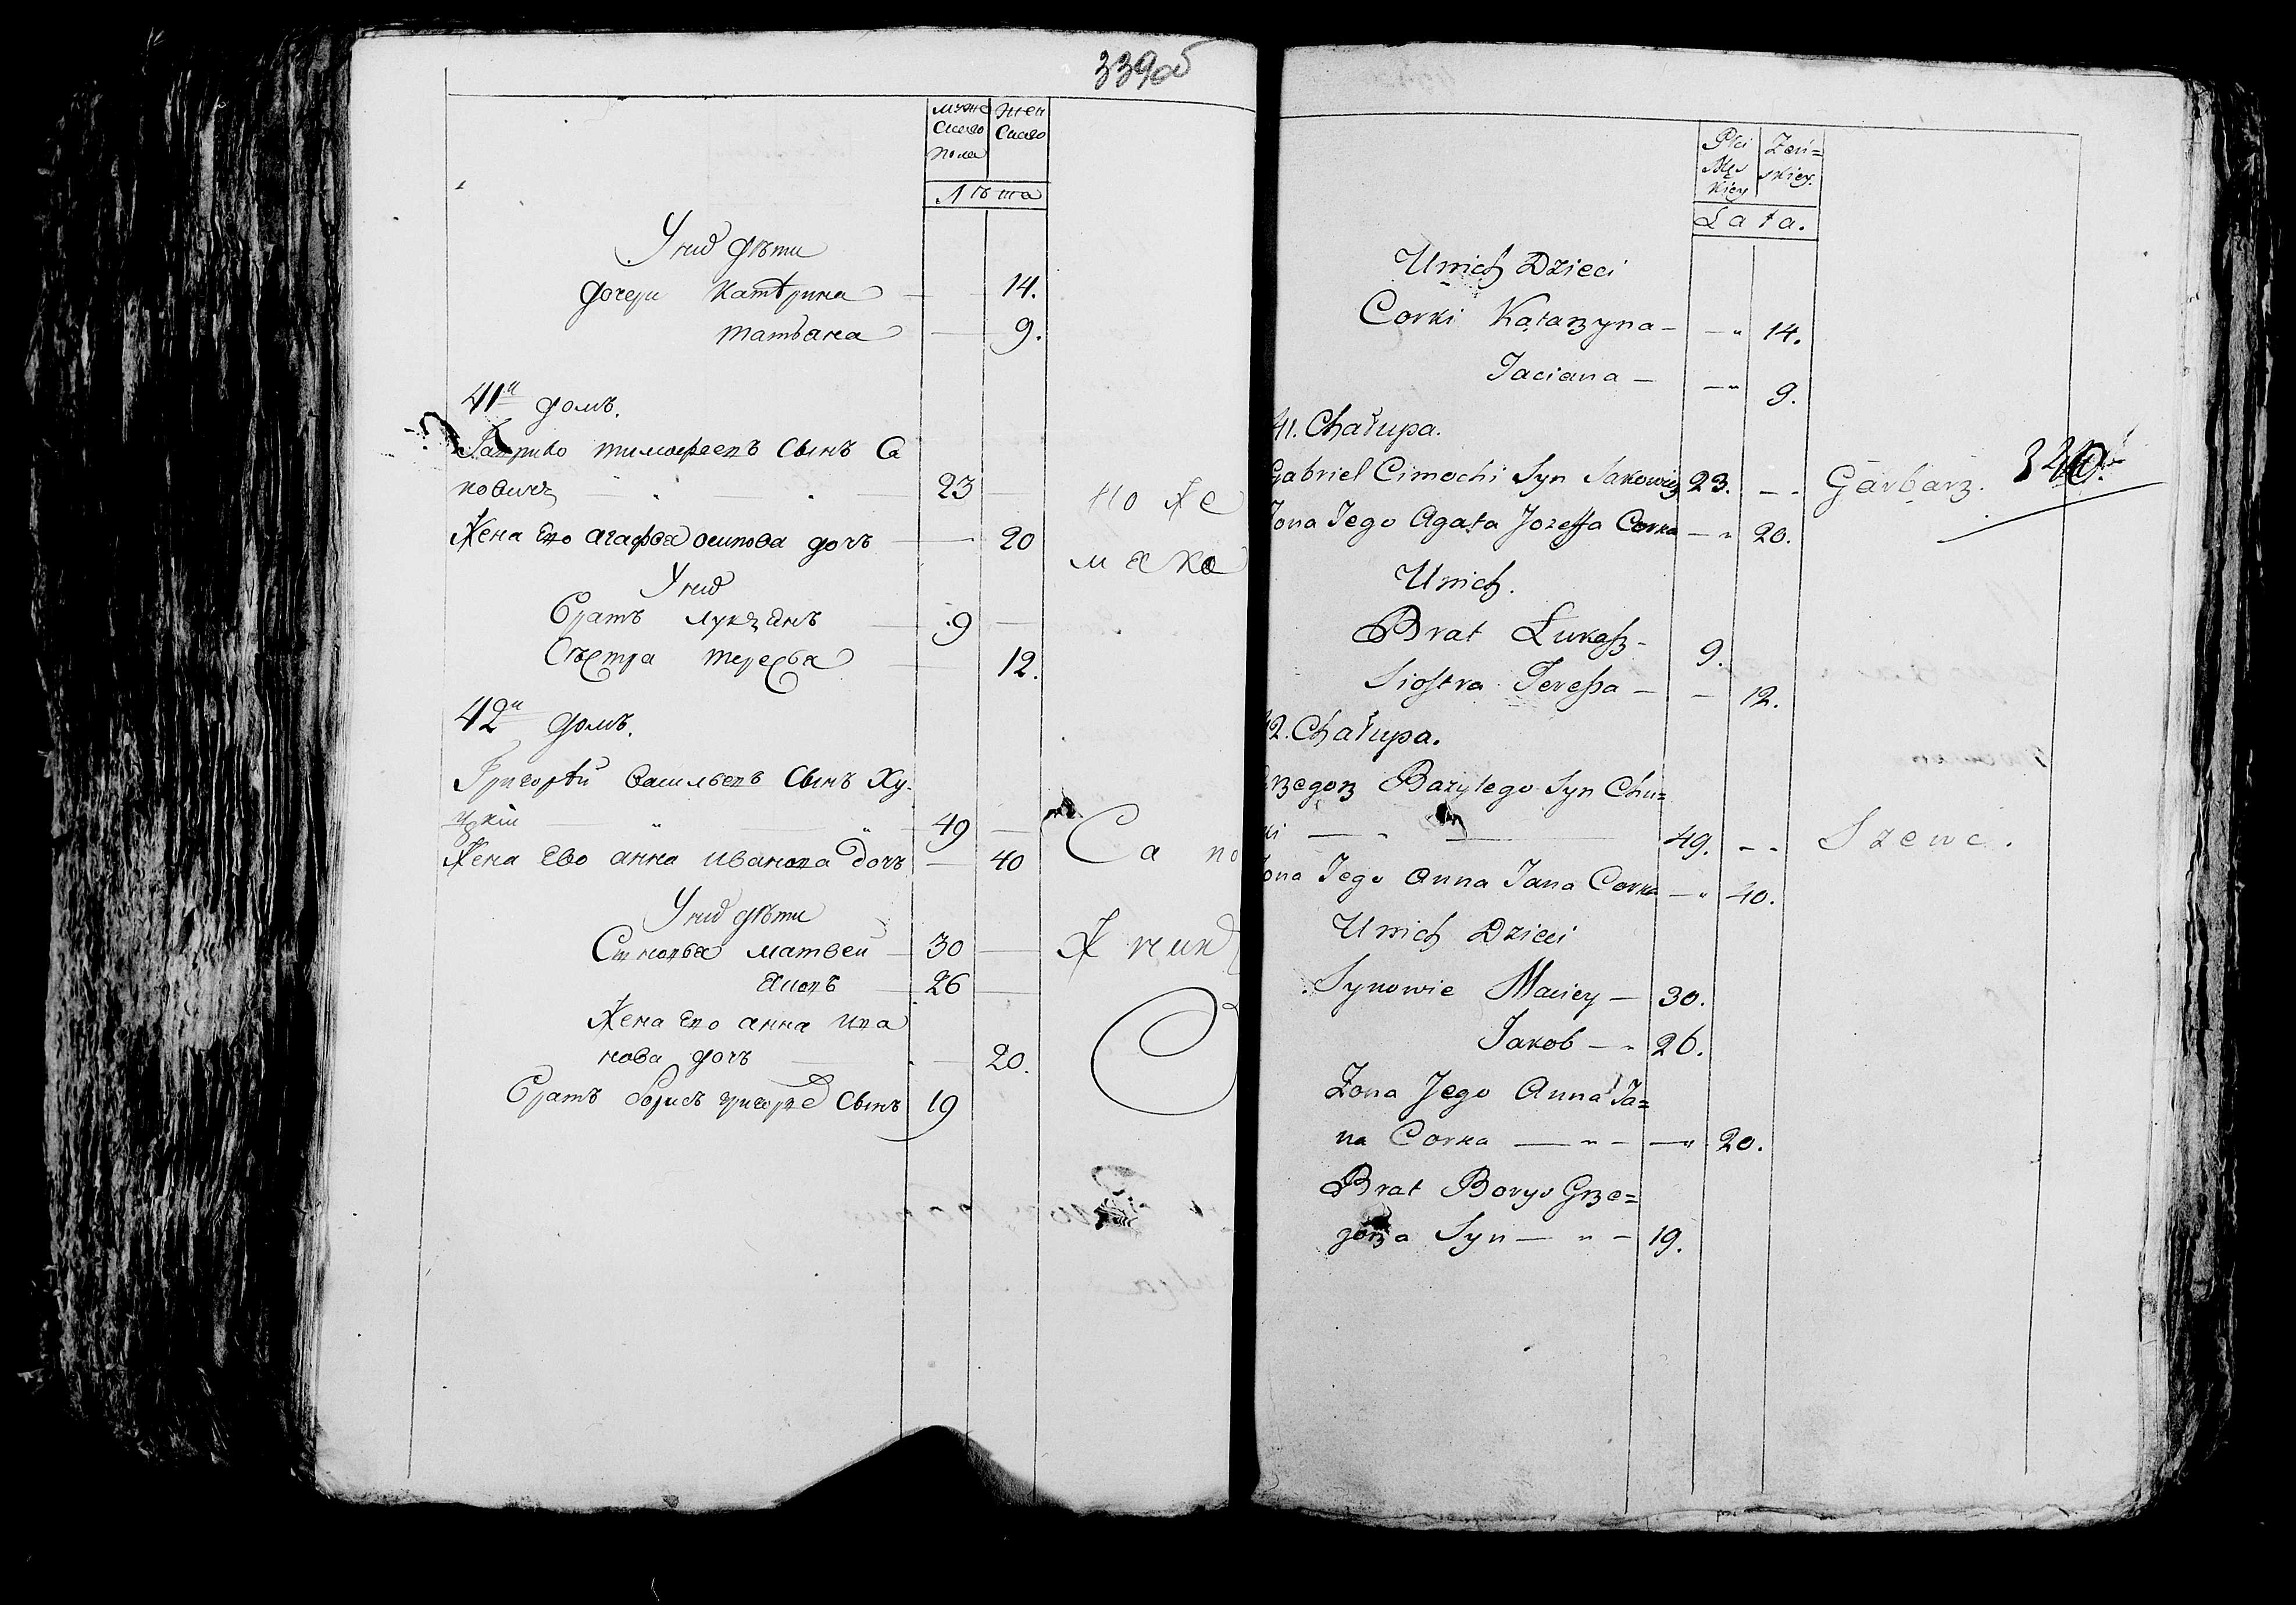 339об
мужескаго пола
женскаго
Лѣта
У них дѣти
дочери Катѣрина 14.
татьана 9.
41й домъ.
Гаврило тимофеевъ Сынъ Са
кович 23
Жена Ево агафьа осипова дочь 20
У них
братъ лукъанъ 9
Сѣстра тересьа 12.
42й домъ.
Григорѣй васильевъ Сынъ Ху
цкій 49
Жена Ево анна иванова дочь 40
У них дѣти
Сыновьа матвей 30
Аковъ 26
Жена Ево анна ива
нова дочь 20.
братъ борисъ григорье Сынъ 19
коже
мака
Са по
Płci Męskiey
Żeń=skiey.
Lata.
U nich Dzieci
Corki Katarzyna — — " 14.
Taciana — — " 9.
41. Chałupa.
Gabriel Cimochi Syn Sakowicz 23. — - Garbarz.
340.
Żona Jego Agata Jozeffa Corka — " 20.
U nich.
Brat Łukasz - 9.
Siostra Teressa — — 12.
42. Chałupa.
Grzegorz Bazylego Syn Chu=
ki — " — 49. — - Szewc.
Żona Jego Anna Jana Corka — " 40.
U nich Dzieci
Synowie Maciey — 30.
Jakob — " 26.
Żona Jego Anna Ja=
na Corka — " — — " 20.
Brat Borys Grze=
gorza Syn — " — 19.